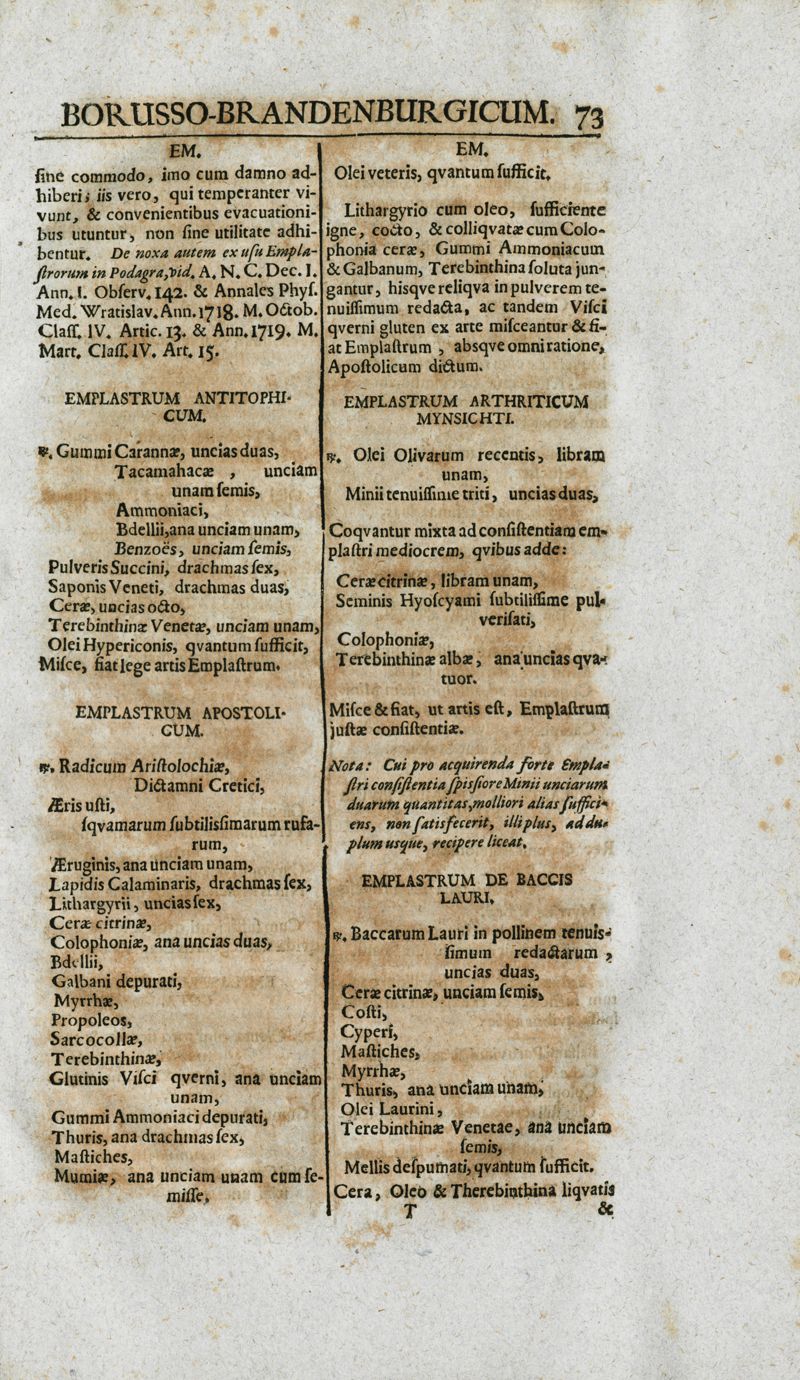 BORUSSO-BRANDENBURGICUM. 73
EM.
ſine commodo, imo cum damno ad-
hiberi; iis vero, qui temperanter vi-
vunt, & convenientibus evacuationi-
bus utuntur, non ſine utilitate adhi-
bentur. De noxa autem ex uſu Empla-
ſtrorum in Podagra, vid. A. N. C. Dec. I.
Ann. I. Obſerv. 142. & Annales Phyſ.
Med. Wratislav. Ann. 1718. M. Octob.
Claſſ. IV. Artic. 13. & Ann. 1719. M.
Mart. Claſſ. IV. Art. 15.
EMPLASTRUM ANTITOPHI-
CUM.
℞. Gummi Carannæ, uncias duas,
Tacamahacæ , unciam
unam ſemis,
Ammoniaci,
Bdellii, ana unciam unam,
Benzoës, unciam ſemis,
Pulveris Succini, drachmas ſex,
Saponis Veneti, drachmas duas,
Ceræ, uncias octo,
Terebinthinæ Venetæ, unciam unam,
Olei Hypericonis, qvantum ſufficit,
Miſce, fiat lege artis Emplaſtrum.
EMPLASTRUM APOSTOLI-
CUM.
℞. Radicum Ariſtolochiæ,
Dictamni Cretici,
Æris uſti,
ſqvamarum ſubtilisſimarum rufa-
rum,
Æruginis, ana unciam unam,
Lapidis Calaminaris, drachmas ſex,
Lithargyrii, uncias ſex,
Ceræ citrinæ,
Colophoniæ, ana uncias duas,
Bdellii,
Galbani depurati,
Myrrhæ,
Propoleos,
Sarcocollæ,
Terebinthinæ,
Glutinis Viſci qverni, ana unciam
unam,
Gummi Ammoniaci depurati,
Thuris, ana drachmas ſex,
Maſtiches,
Mumiæ, ana unciam unam cum ſe-
miſſe,
EM.
Olei veteris, qvantum ſufficit.
Lithargyrio cum oleo, ſufficiente
igne, cocto, & colliqvatæ cum Colo-
phonia ceræ, Gummi Ammoniacum
& Galbanum, Terebinthina ſoluta jun-
gantur, hisqve reliqva in pulverem te-
nuiſſimum redacta, ac tandem Viſci
qverni gluten ex arte miſceantur & fi-
at Emplaſtrum , absqve omni ratione,
Apoſtolicum dictum.
EMPLASTRUM ARTHRITICUM
MYNSICHTI.
℞. Olei Olivarum recentis, libram
unam,
Minii tenuiſſime triti, uncias duas,
Coqvantur mixta ad conſiſtentiam em-
plaſtri mediocrem, qvibus adde:
Ceræ citrinæ, libram unam,
Seminis Hyoſcyami ſubtiliſſime pul-
veriſati,
Colophoniæ,
Terebinthinæ albæ, ana uncias qva-
tuor.
Miſce & fiat, ut artis eſt, Emplaſtrum
juſtæ conſiſtentiæ.
Nota: Cui pro acquirenda forte Empla-
ſtri conſiſtentia ſpisſiore Minii unciarum
duarum quantitas, molliori alias ſuffici-
ens, non ſatisfecerit, illi plus, ad du-
plum usque, recipere liceat.
EMPLASTRUM DE BACCIS
LAURI.
℞. Baccarum Lauri in pollinem tenuis-
ſimum redactarum ,
uncias duas,
Ceræ citrinæ, unciam ſemis,
Coſti,
Cyperi,
Maſtiches,
Myrrhæ,
Thuris, ana unciam unam,
Olei Laurini,
Terebinthinæ Venetae, ana unciam
ſemis,
Mellis deſpumati, qvantum ſufficit.
Cera, Oleo & Therebinthina liqvatis
T &